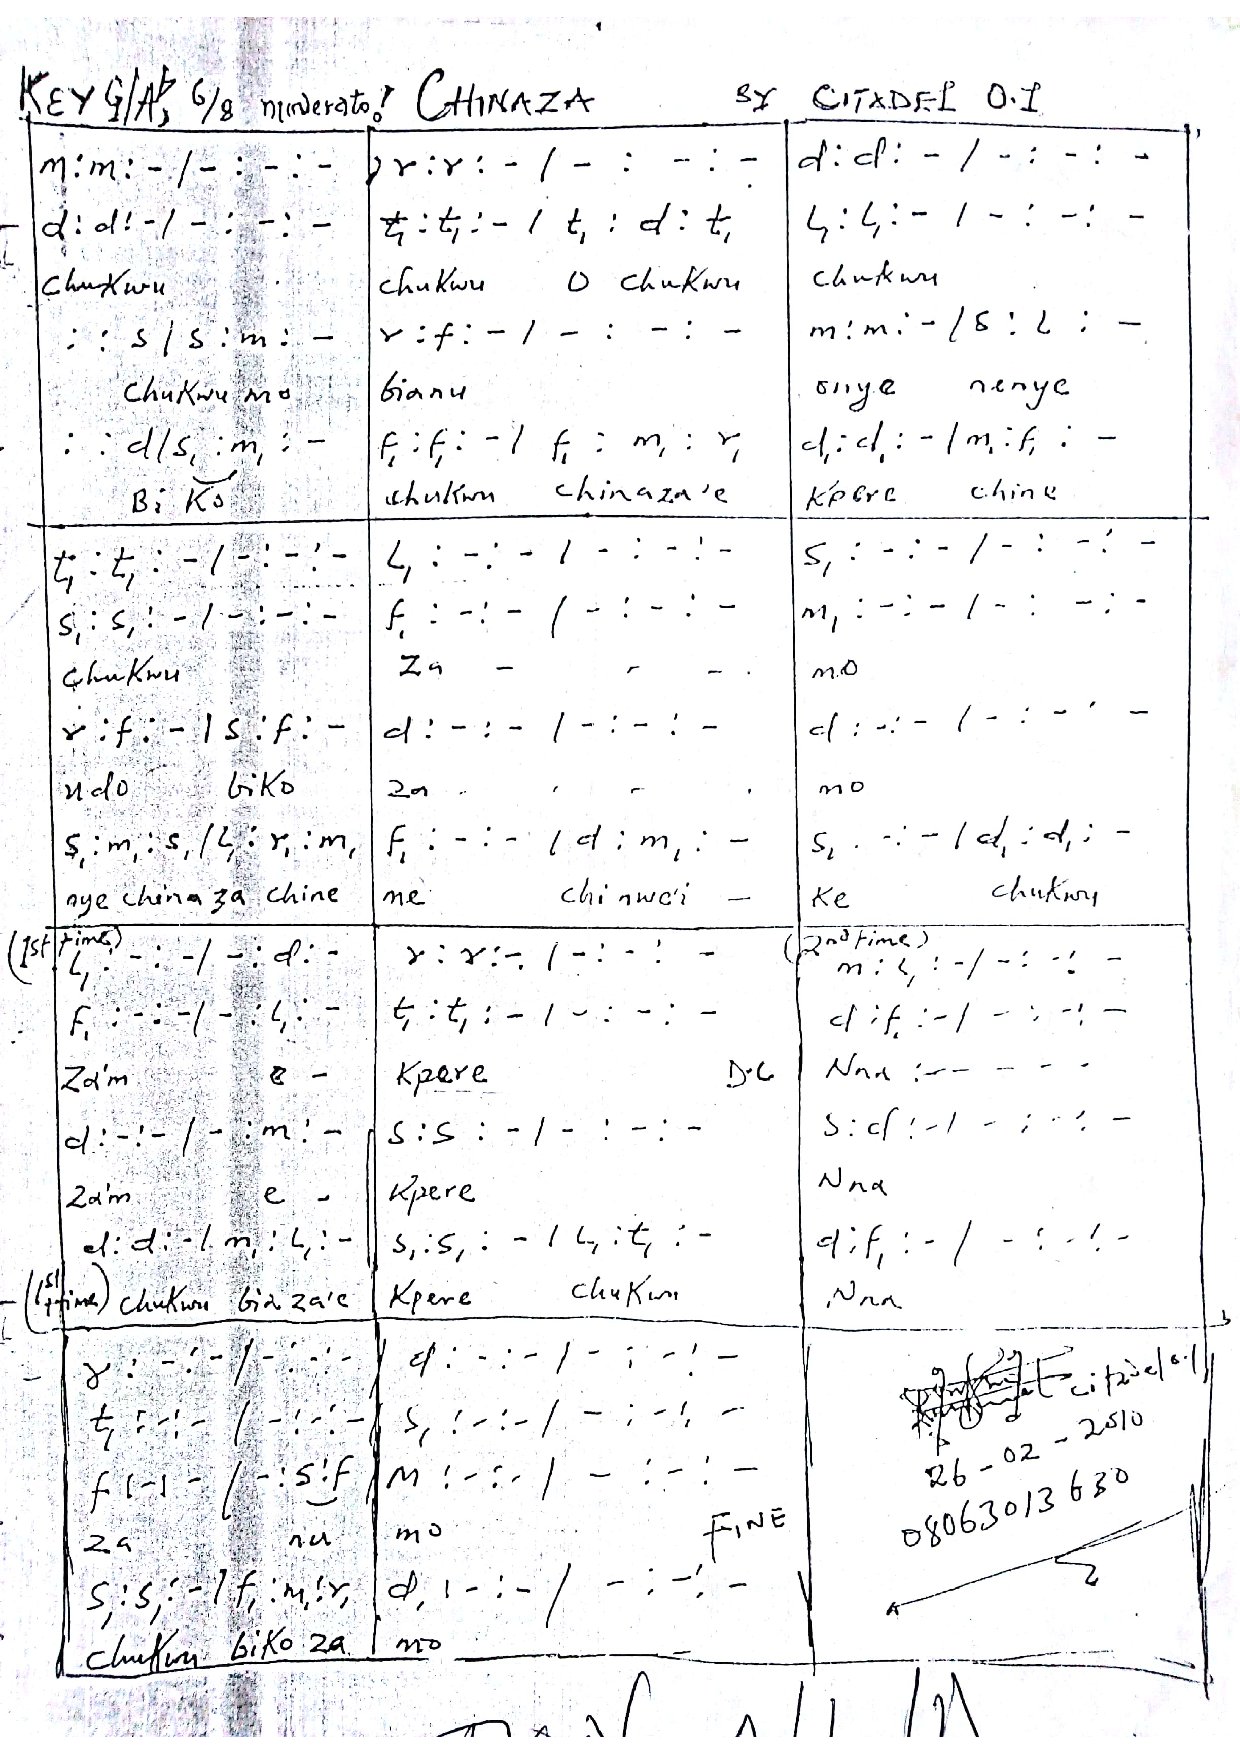 KEY G/A♭, 6/8 moderato! CHINAZA BY CITADEL O.I
m:m:-/-:-:- r:r:-/-:-:- d:d:-/-:-:-
d:d:-/-:-:- t,:t,:-/t,:d:t, l,:l,:-/-:-:-
Chukwu chukwu O chukwu chukwu
: : s/s:m:- r:f:-/-:-:- m:m:-/s:l:-
Chukwu mo bianu onye nenye
: : d/s,:m,:- f,:f,:-/f,:m,:r, d,:d,:-/m,:f,:-
Bi Ko chukwu chinaza'e Kpere chine
t,:t,:-/-:-:- l,:-:-/-:-:- s,:-:-/-:-:-
s,:s,:-/-:-:- f,:-:-/-:-:- m,:-:-/-:-:-
Chukwu Za - - - . mo
r:f:-/s:f:- d:-:-/-:-:- d:-:-/-:-:-
udo biko za mo
s,:m,:s,/l,:r,:m, f,:-:-/d:m,:- s,:-:-/d,:d,:-
nye chinaza chine ne chinwe'i - Ke chukwu
(1st time) (2nd time)
l,:-:-/-:d:- r:r:-/-:-:- m:l,:-/-:-:-
f,:-:-/-:l,:- t,:t,:-/-:-:- d:f,:-/-:-:-
Za'm e - Kpere D.C Nna :- - - - -
d:-:-/-:m:- s:s:-/-:-:- s:d:-/-:-:-
Za'm e - Kpere Nna
d:d:-/m,:l,:- s,:s,:-/l,:t,:- d:f,:-/-:-:-
(1st time) chukwu bia za'e Kpere chukwu Nna
r:-:-/-:-:- d:-:-/-:-:-
t,:-:-/-:-:- s,:-:-/-:-:- citadel o.I
f:-:-/-:s:f m:-:-/-:-:- 26-02-2010
za nu mo FINE 08063013630
s,:s,:-/f,:m,:r, d,:-:-/-:-:-
chukwu biko za mo